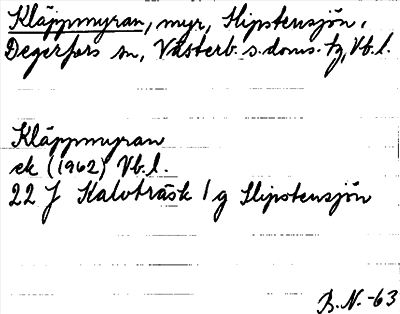 Kläppmyran, myr, Slipstensjön,
Degerfors sn, Västerb. s. doms. tg, Vb. l.
Kläppmyran
ek (1962) Vb. l.
22 J Kalvträsk 1 g Slipstensjön
B. N. -63